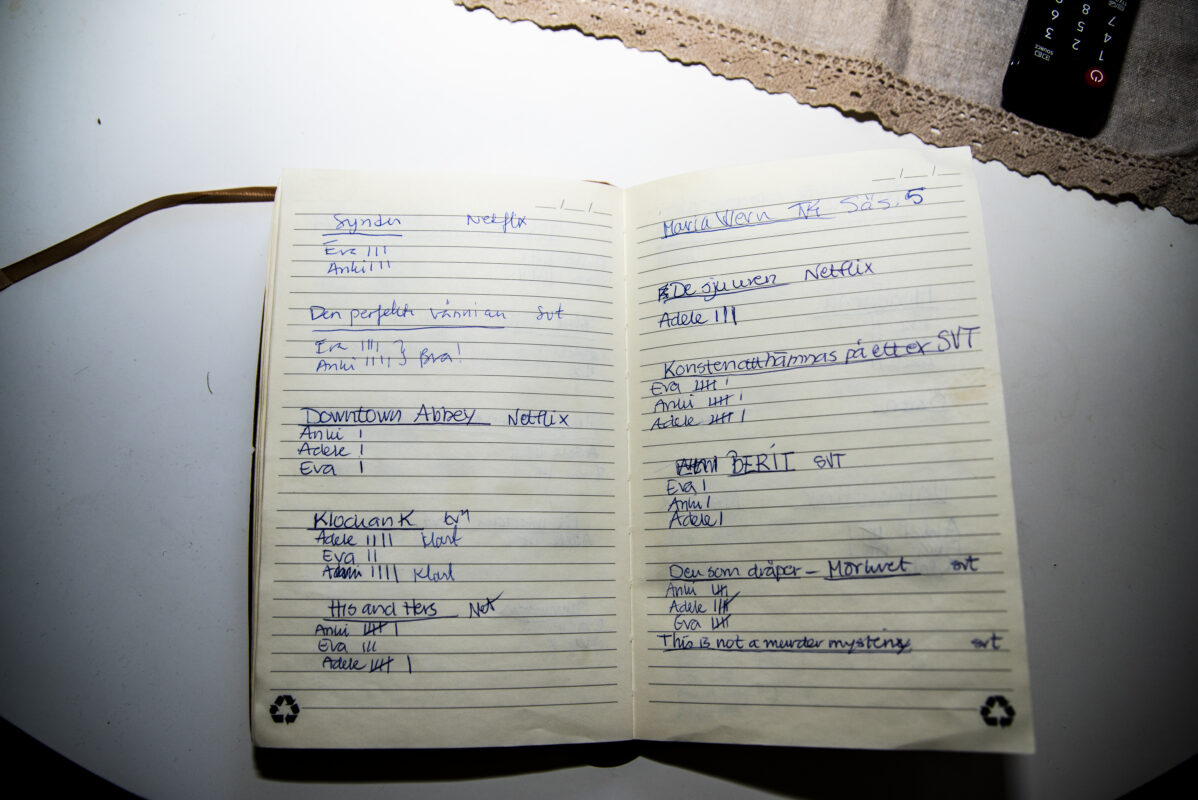 Synden Netflix
Eva |||
Anki |||
Den perfekta svt
Eva ||||
Anki ||||| } Bra!
Downtown Abbey Netflix
Anki |
Adele |
Eva |
Klockan K tv4
Adele |||| klart
Eva ||
Anki |||| klart
His and Hers Net
Anki |||| |
Eva |||
Adele |||| |
Maria Wern Säs. 5
De sju uren Netflix
Adele |||
Konsten att hämnas på ett ex SVT
Eva |||| |
Anki |||| |
Adele |||| |
BERIT SVT
Eva |
Anki |
Adele |
Den som dräper – Mörkret svt
Anki ||||
Adele ||||
Eva ||||
This is not a murder mystery svt
1 2 3
4 5 6
7 8
SOURCE